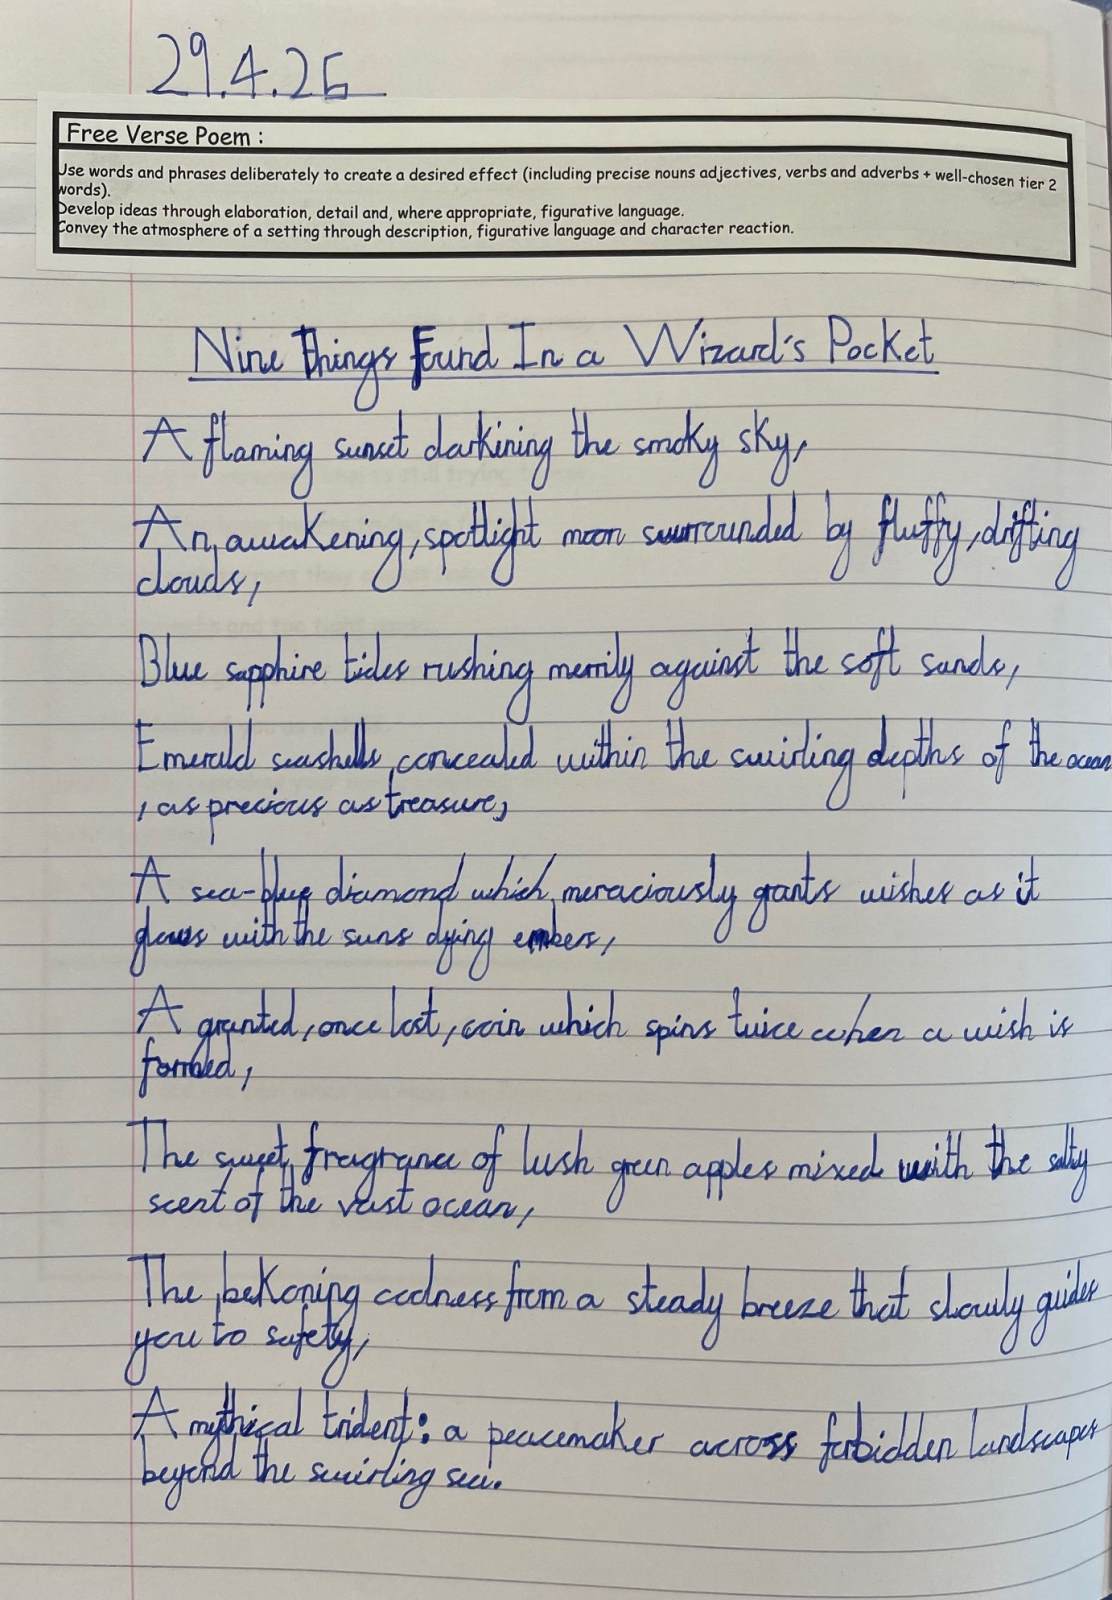 29.4.26
Free Verse Poem :
Use words and phrases deliberately to create a desired effect (including precise nouns adjectives, verbs and adverbs + well-chosen tier 2
words).
Develop ideas through elaboration, detail and, where appropriate, figurative language.
Convey the atmosphere of a setting through description, figurative language and character reaction.
Nine Things Found In a Wizard's Pocket
A flaming sunset darkining the smoky sky,
An, awakening, spotlight moon surrounded by fluffy, drifting
clouds,
Blue sapphire tides rushing merrily against the soft sands,
Emerald seashells, concealed within the swirling depths of the ocean
, as precious as treasure,
A sea-blue diamond which, meraciously grants wishes as it
glows with the suns dying embers,
A granted, once lost, coin which spins twice when a wish is
formed,
The sweet, fragrance of lush green apples mixed with the salty
scent of the vast ocean,
The, bekoning coolness from a steady breeze that slowly guides
you to safety,
A mythical trident: a peacemaker across forbidden landscapes
beyond the swirling sea.